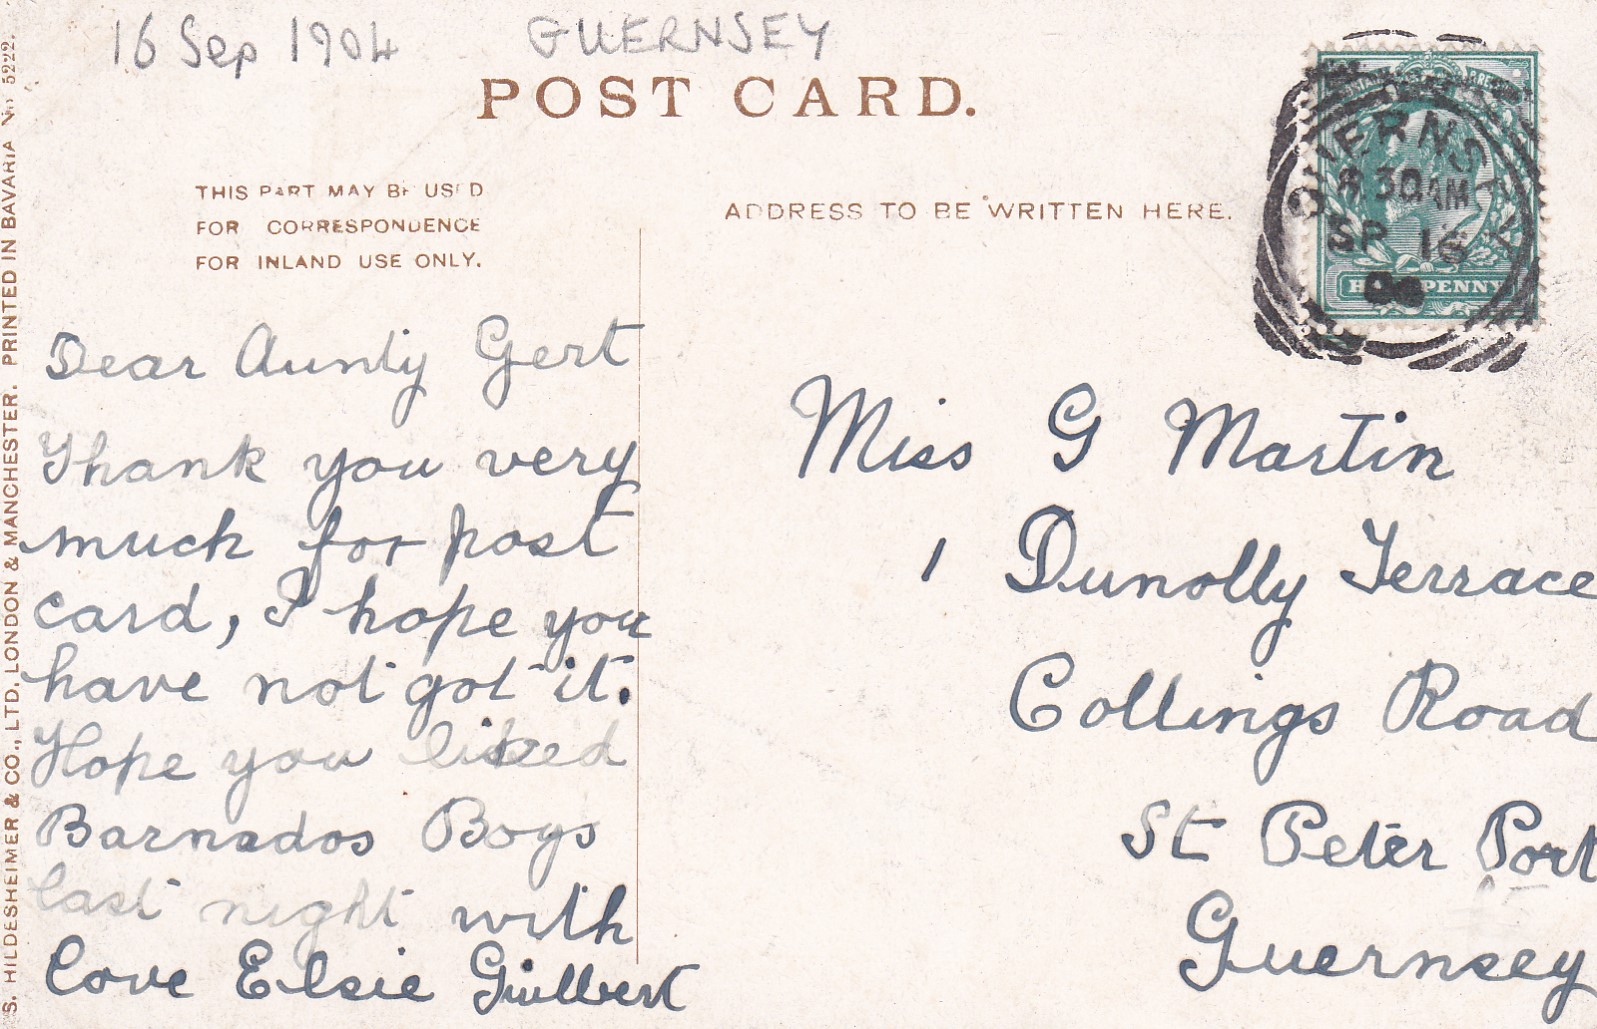 16 Sep 1904 GUERNSEY
POST CARD.
THIS PART MAY BE USED
FOR CORRESPONDENCE
FOR INLAND USE ONLY.
ADDRESS TO BE WRITTEN HERE.
GUERNSEY
30 AM
SP 16
HALFPENNY
Dear Aunty Gert
Thank you very
much for post
card, I hope you
have not got it.
Hope you liked
Barnados Boys
last night with
love Elsie Guilbert
Miss G Martin
1 Dunolly Terrace
Collings Road
St Peter Port
Guernsey
S. HILDESHEIMER & CO., LTD. LONDON & MANCHESTER. PRINTED IN BAVARIA No 5222.